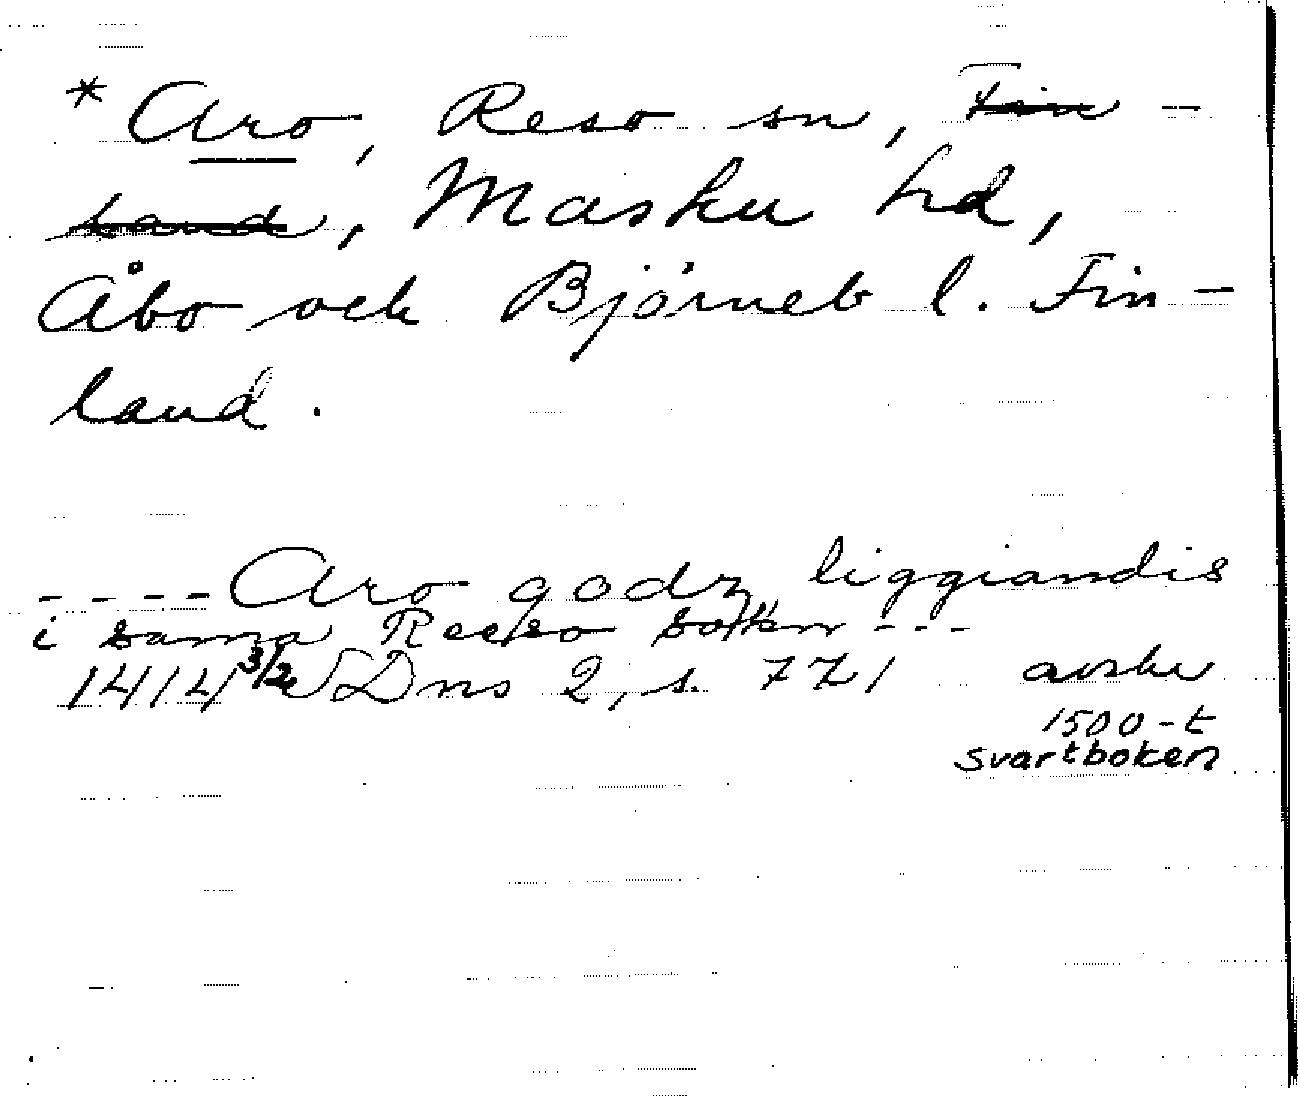 * Aro, Reso sn, Fin-
land, Masku hd,
Åbo och Björneb l. Fin-
land.
----Aro godz liggiandis
i sama Reeso sokn ---
1414 3/2 SDns 2, s. 771 avskr
1500-t
svartboken